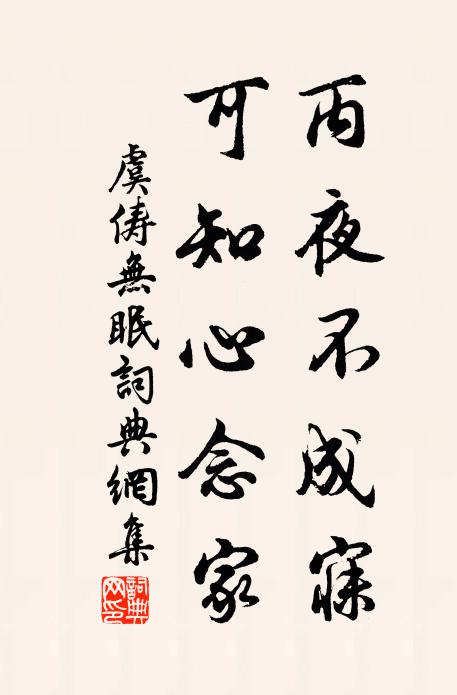 丙夜不成寐
可知心念家
虞俦無眠詞典網集
詞典网印